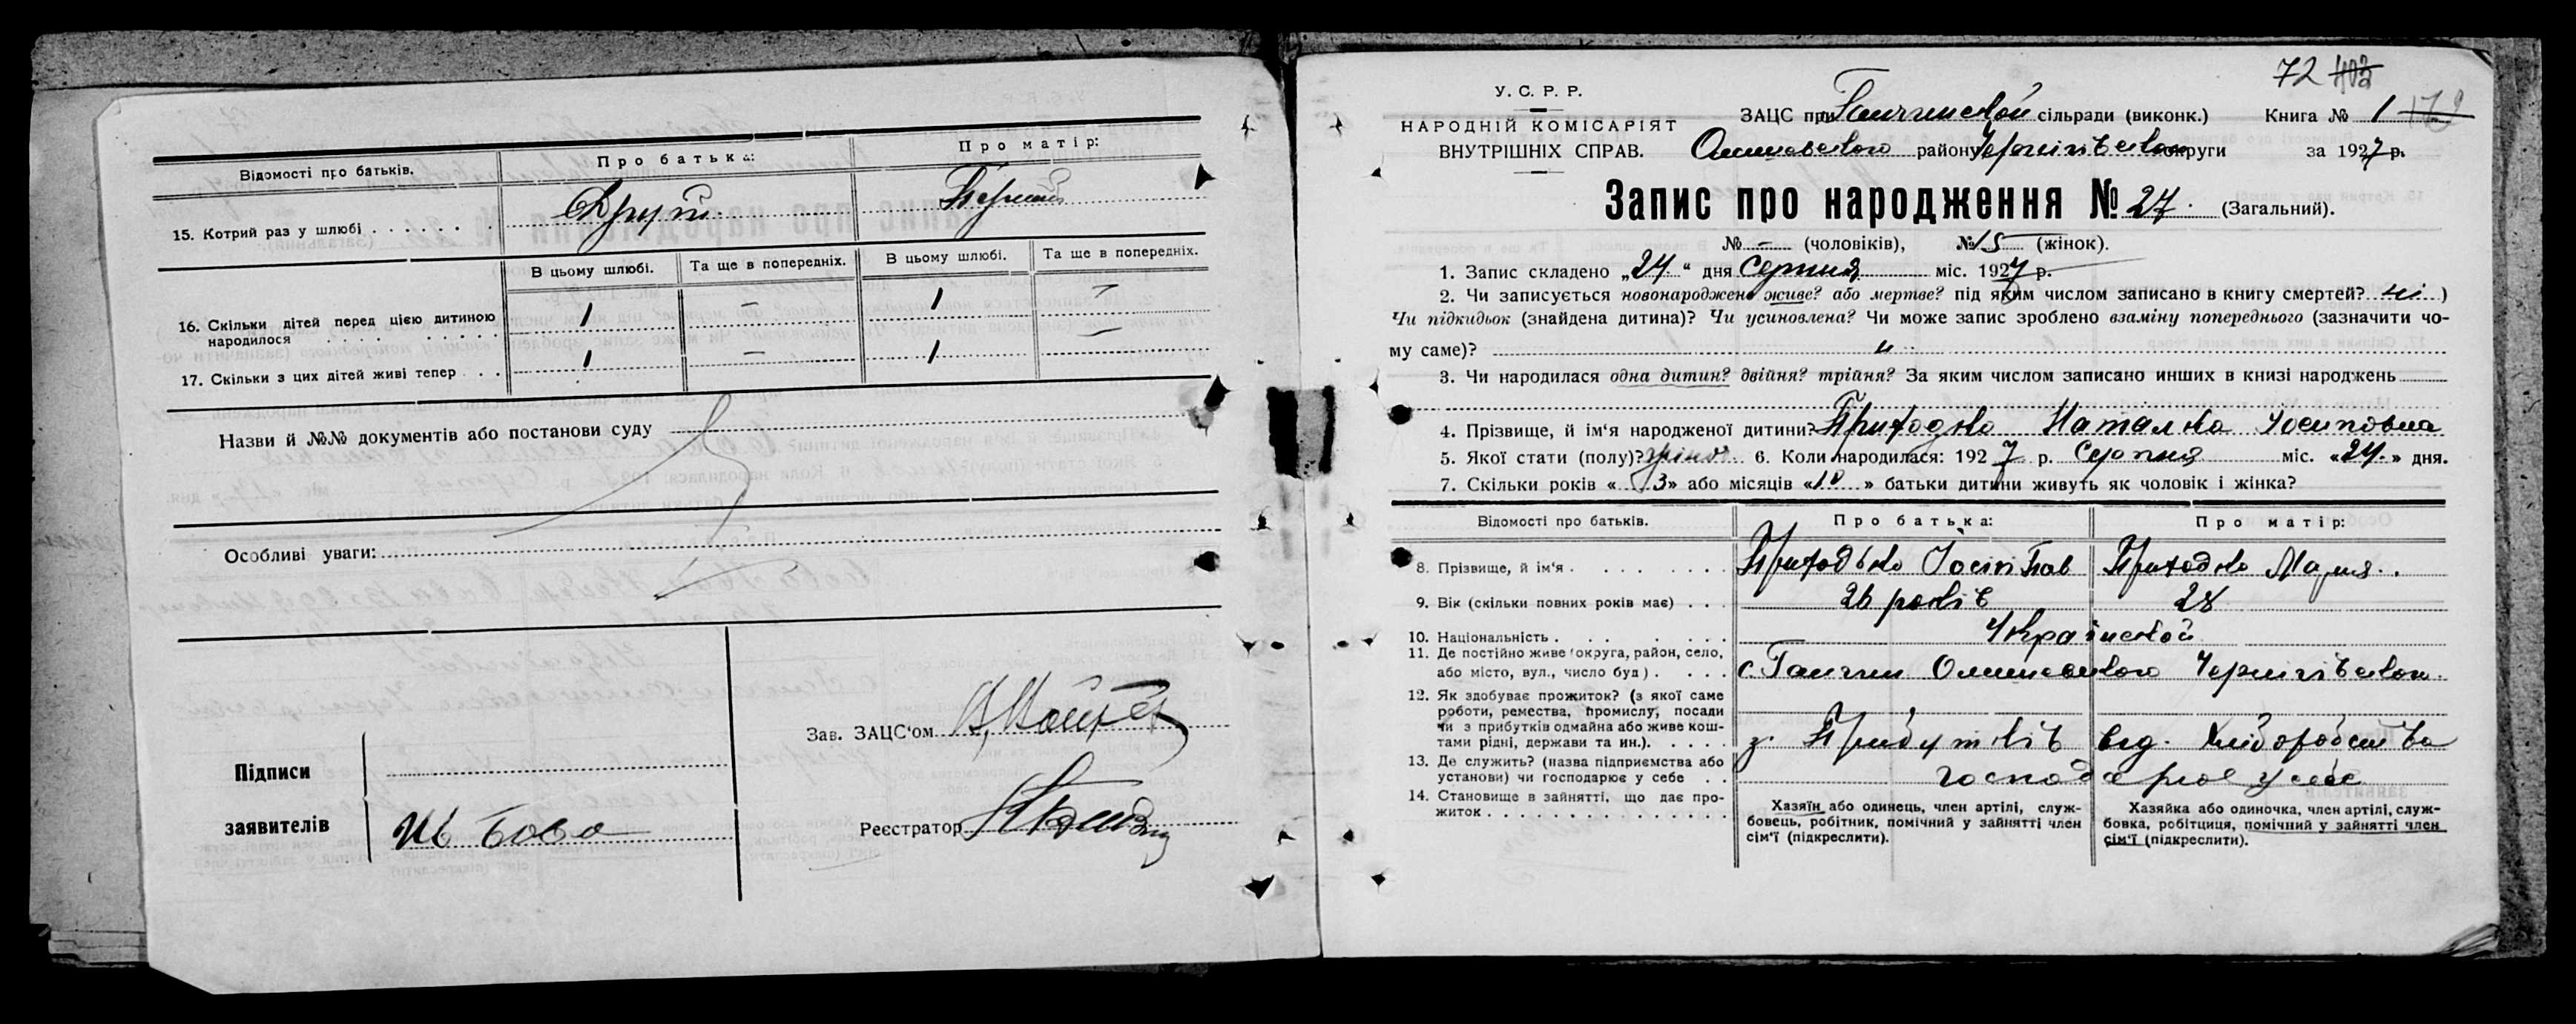 Відомості про батьків. Про батька: Про матір:
15. Котрий раз у шлюбі Другий Перший
В цьому шлюбі. Та ще в попередніх. В цьому шлюбі. Та ще в попередніх.
16. Скільки дітей перед цією дитиною
народилося 1 — 1 —
17. Скільки з цих дітей живі тепер 1 — 1 —
Назви й №№ документів або постанови суду
Особливі уваги:
Зав. ЗАЦС'ом
Підписи
заявителів
Реєстратор
72 403
У. С. Р. Р.
НАРОДНІЙ КОМІСАРІЯТ
ВНУТРІШНІХ СПРАВ.
ЗАЦС при сільради (виконк.) Книга № 1 172
Олишевського району Чернігівської округи за 1927 р.
Запис про народження № 27. (Загальний).
№ — (чоловіків), № 15 (жінок).
1. Запис складено „24“ дня Серпня міс. 1927 р.
2. Чи записується новонароджене живе? або мертве? під яким числом записано в книгу смертей? ні )
Чи підкидьок (знайдена дитина)? Чи усиновлена? Чи може запис зроблено взаміну попереднього (зазначити чо-
му саме)? "
3. Чи народилася одна дитин? двійня? трійня? За яким числом записано инших в книзі народжень
4. Прізвище, й ім'я народженої дитини? Приходко Наталка Йосиповна
5. Якої стати (полу)? жіно 6. Коли народилася: 1927 р. Серпня міс. «24.» дня.
7. Скільки років « 3» або місяців «10» батьки дитини живуть як чоловік і жінка?
Відомості про батьків. Про батька: Про матір:
8. Прізвище, й ім'я Приходько Йосип Пав Приходко Мария.
9. Вік (скільки повних років має) 26 років 28
10. Національність Українской
11. Де постійно живе (округа, район, село,
або місто, вул., число буд) с. Олишевського Чернігівськои.
12. Як здобуває прожиток? (з якої саме
роботи, ремества, промислу, посади
чи з прибутків одмайна або живе кош-
тами рідні, держави та ин.). з. Прибутків від. Хліборобства
13. Де служить? (назва підприємства або
установи) чи господарює у себе господарює у себе
14. Становище в зайнятті, що дає про-
житок
Хазяїн або одинець, член артілі, служ-
бовець, робітник, помічний у зайнятті член
сім'ї (підкреслити).
Хазяйка або одиночка, член артілі, служ-
бовка, робітциця, помічний у зайнятті член
сім'ї (підкреслити).